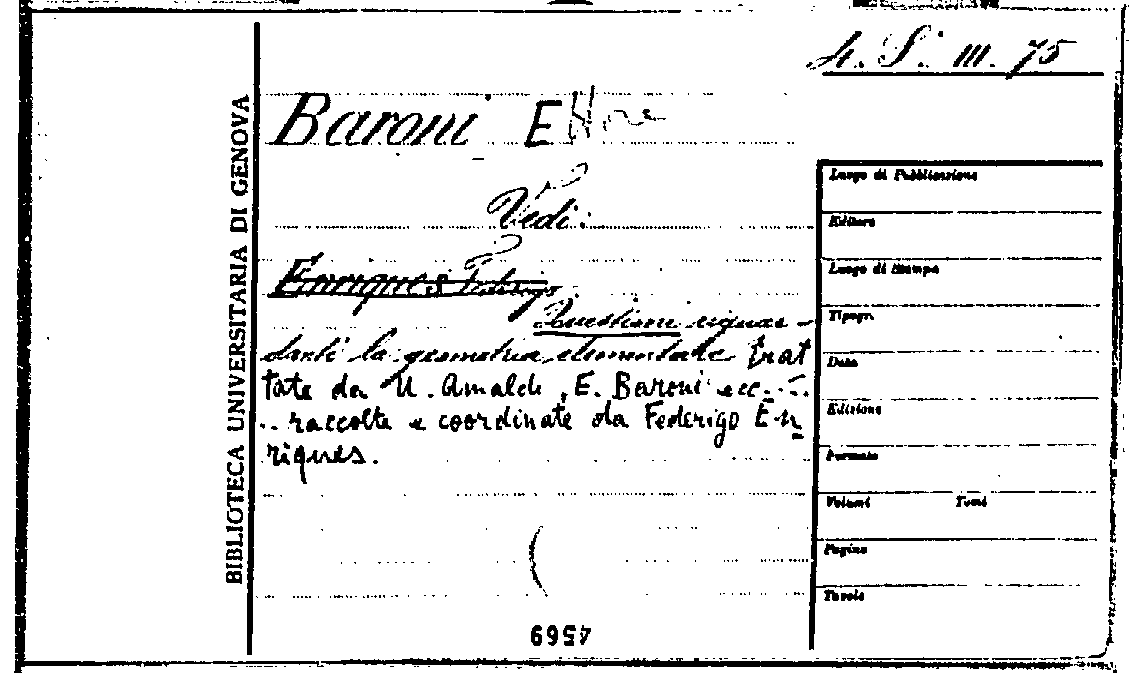 4. S. III. 75
BIBLIOTECA UNIVERSITARIA DI GENOVA
Baroni Ettore
Vedi:
Enriques Federigo
Questioni riguar-
danti la geometria elementare trat
tate da U. Amaldi, E. Baroni ecc....
.. raccolte e coordinate da Federigo En
riques.
Luogo di Pubblicazione
Editore
Luogo di Stampa
Tipogr.
Data
Edizione
Formato
Volumi Tomi
Pagine
Tavole
4569